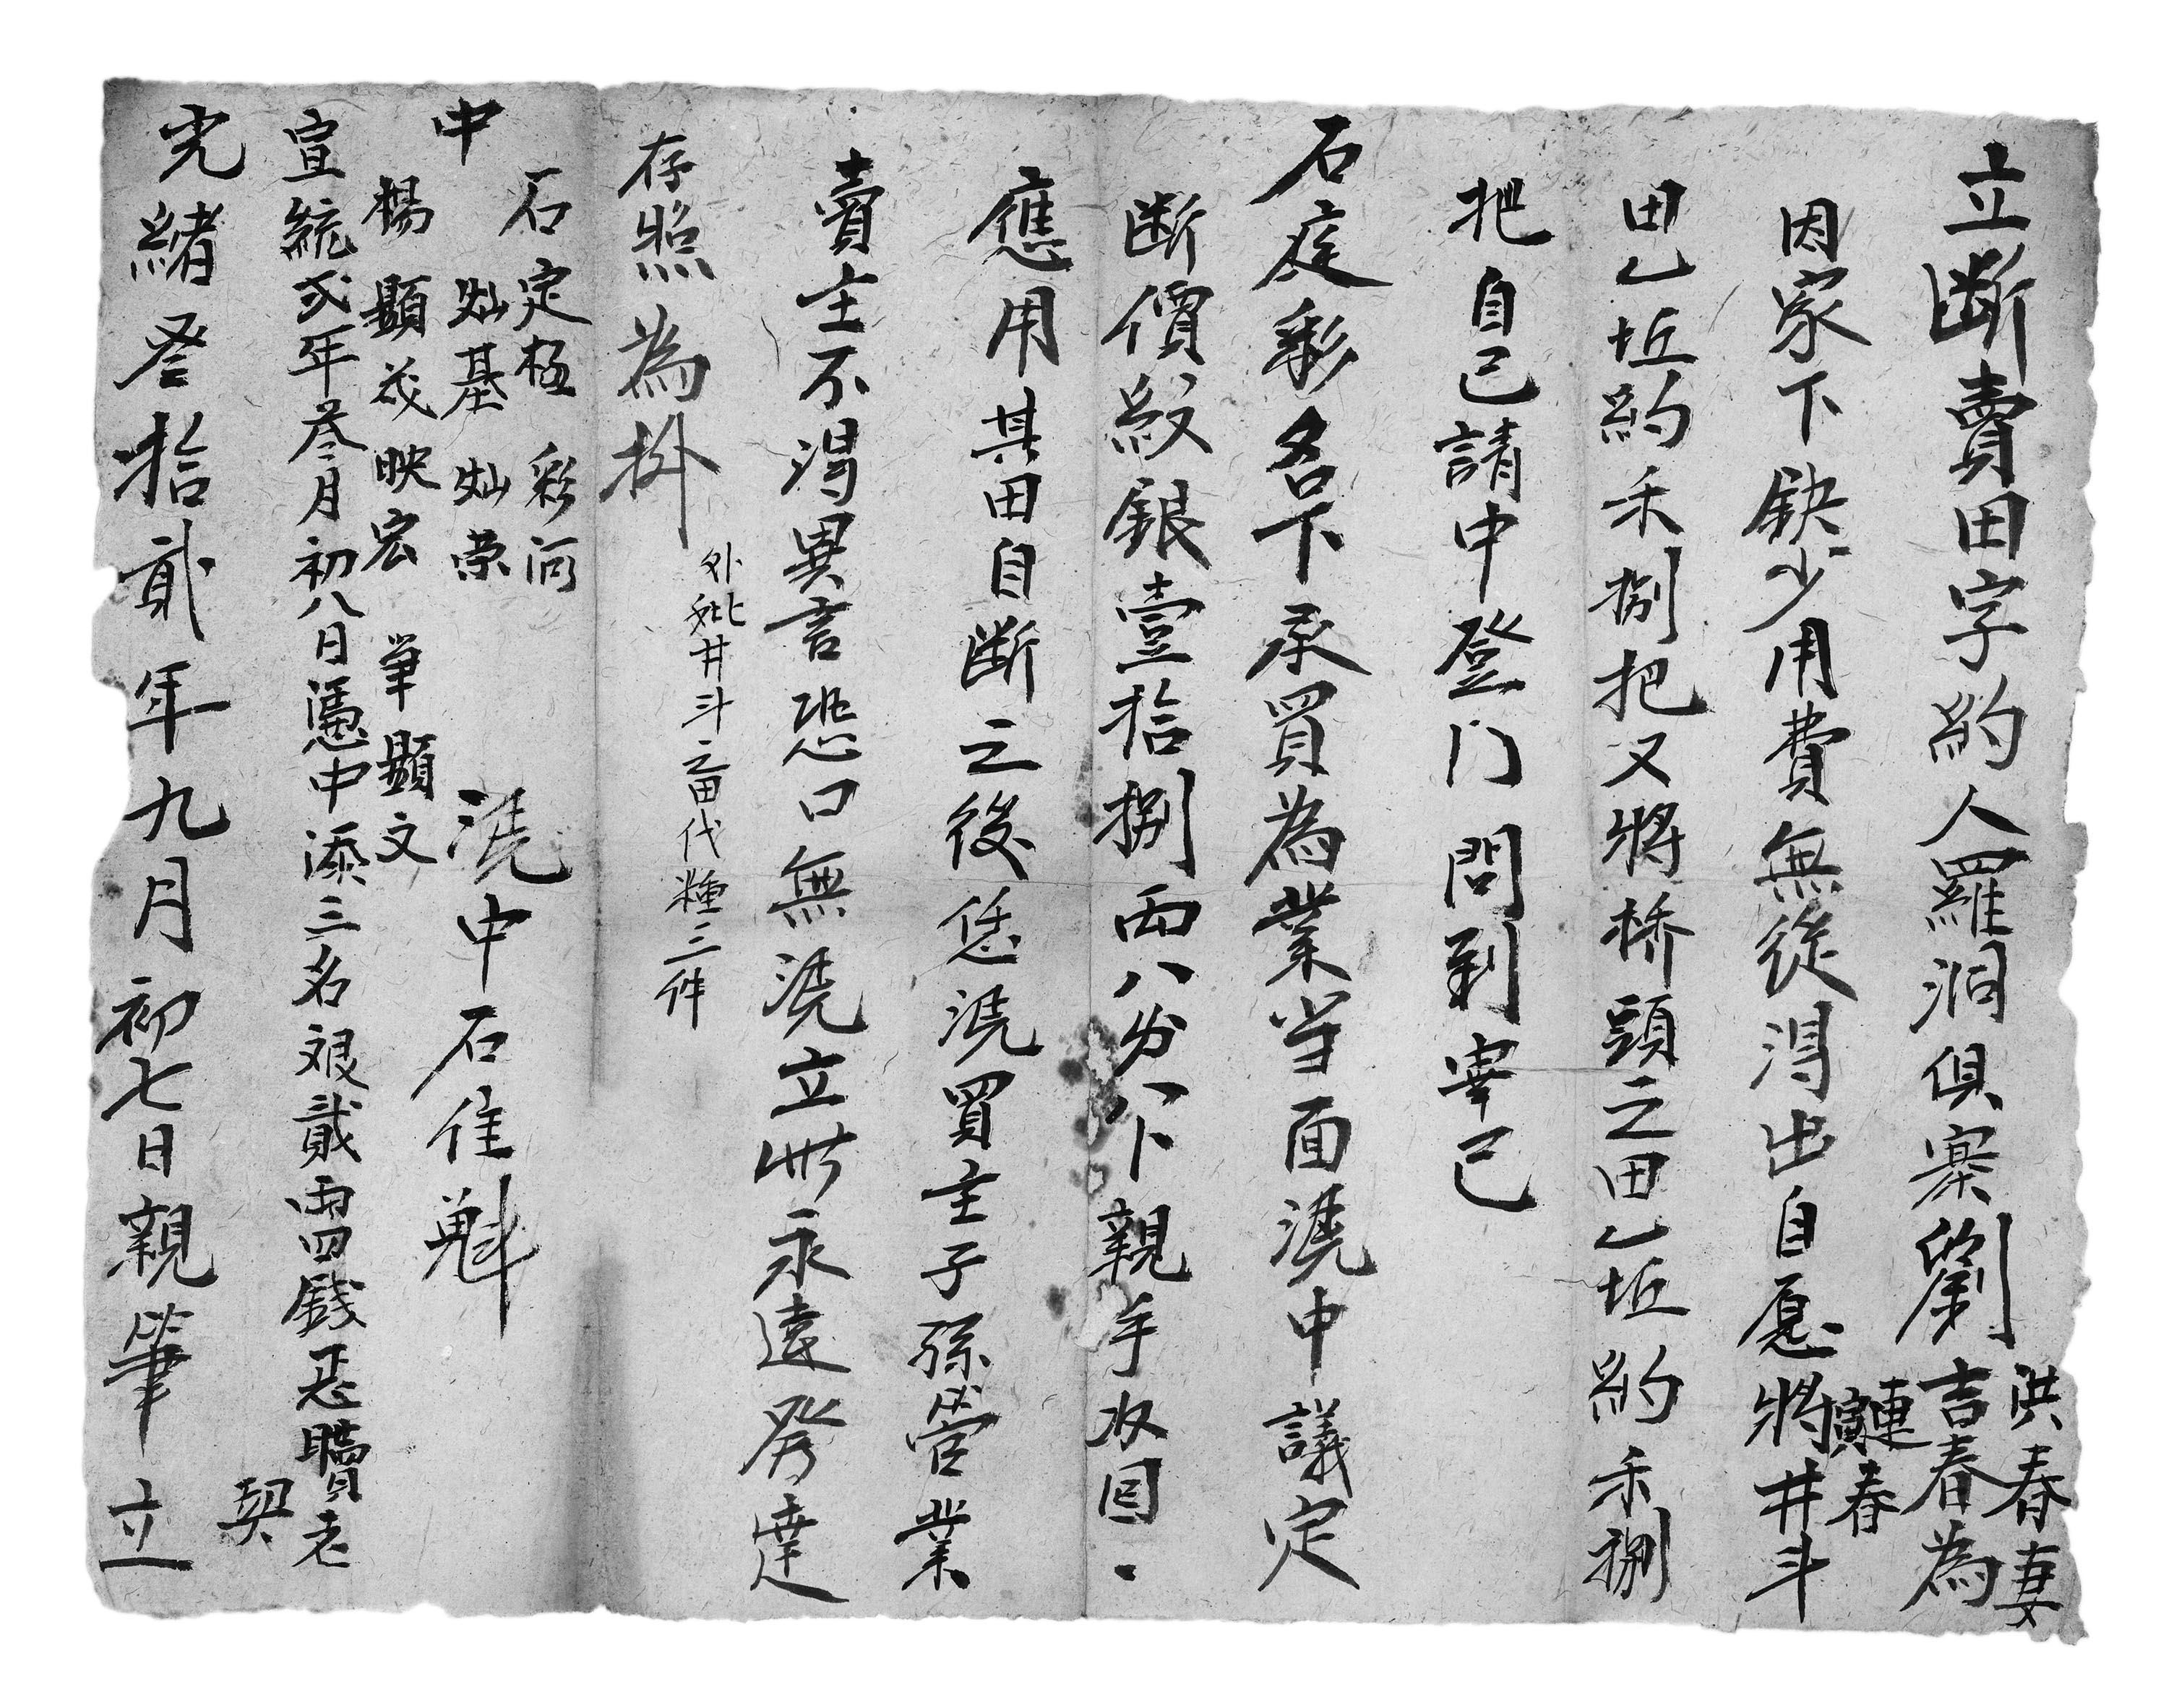 立斷賣田字約人羅洞俱寨劉吉春為
洪春妻
鏈春
因家下缺少用費無從得出自愿將井斗
田乙坵約禾捌把又將橋頭之田乙坵約禾捌
把自己請中登门問到宰已
石庭彩名下承買為業当面凴中議定
断價紋銀壹拾捌両八分八卜親手收回
應用其田自断之後恁凴買主子孫營業
賣主不淂異言恐口無凴立此永遠發達
存照為㧄
外批井斗之田代種三件
石定極 彩河
中 灿基 灿荣 凴中石佳魁
楊顯茂 映宏 筆顯文
宣統弍年叄月初八日憑中添三名艮貳両四錢正贖老
契
光緒叄拾貳年九月初七日親筆立